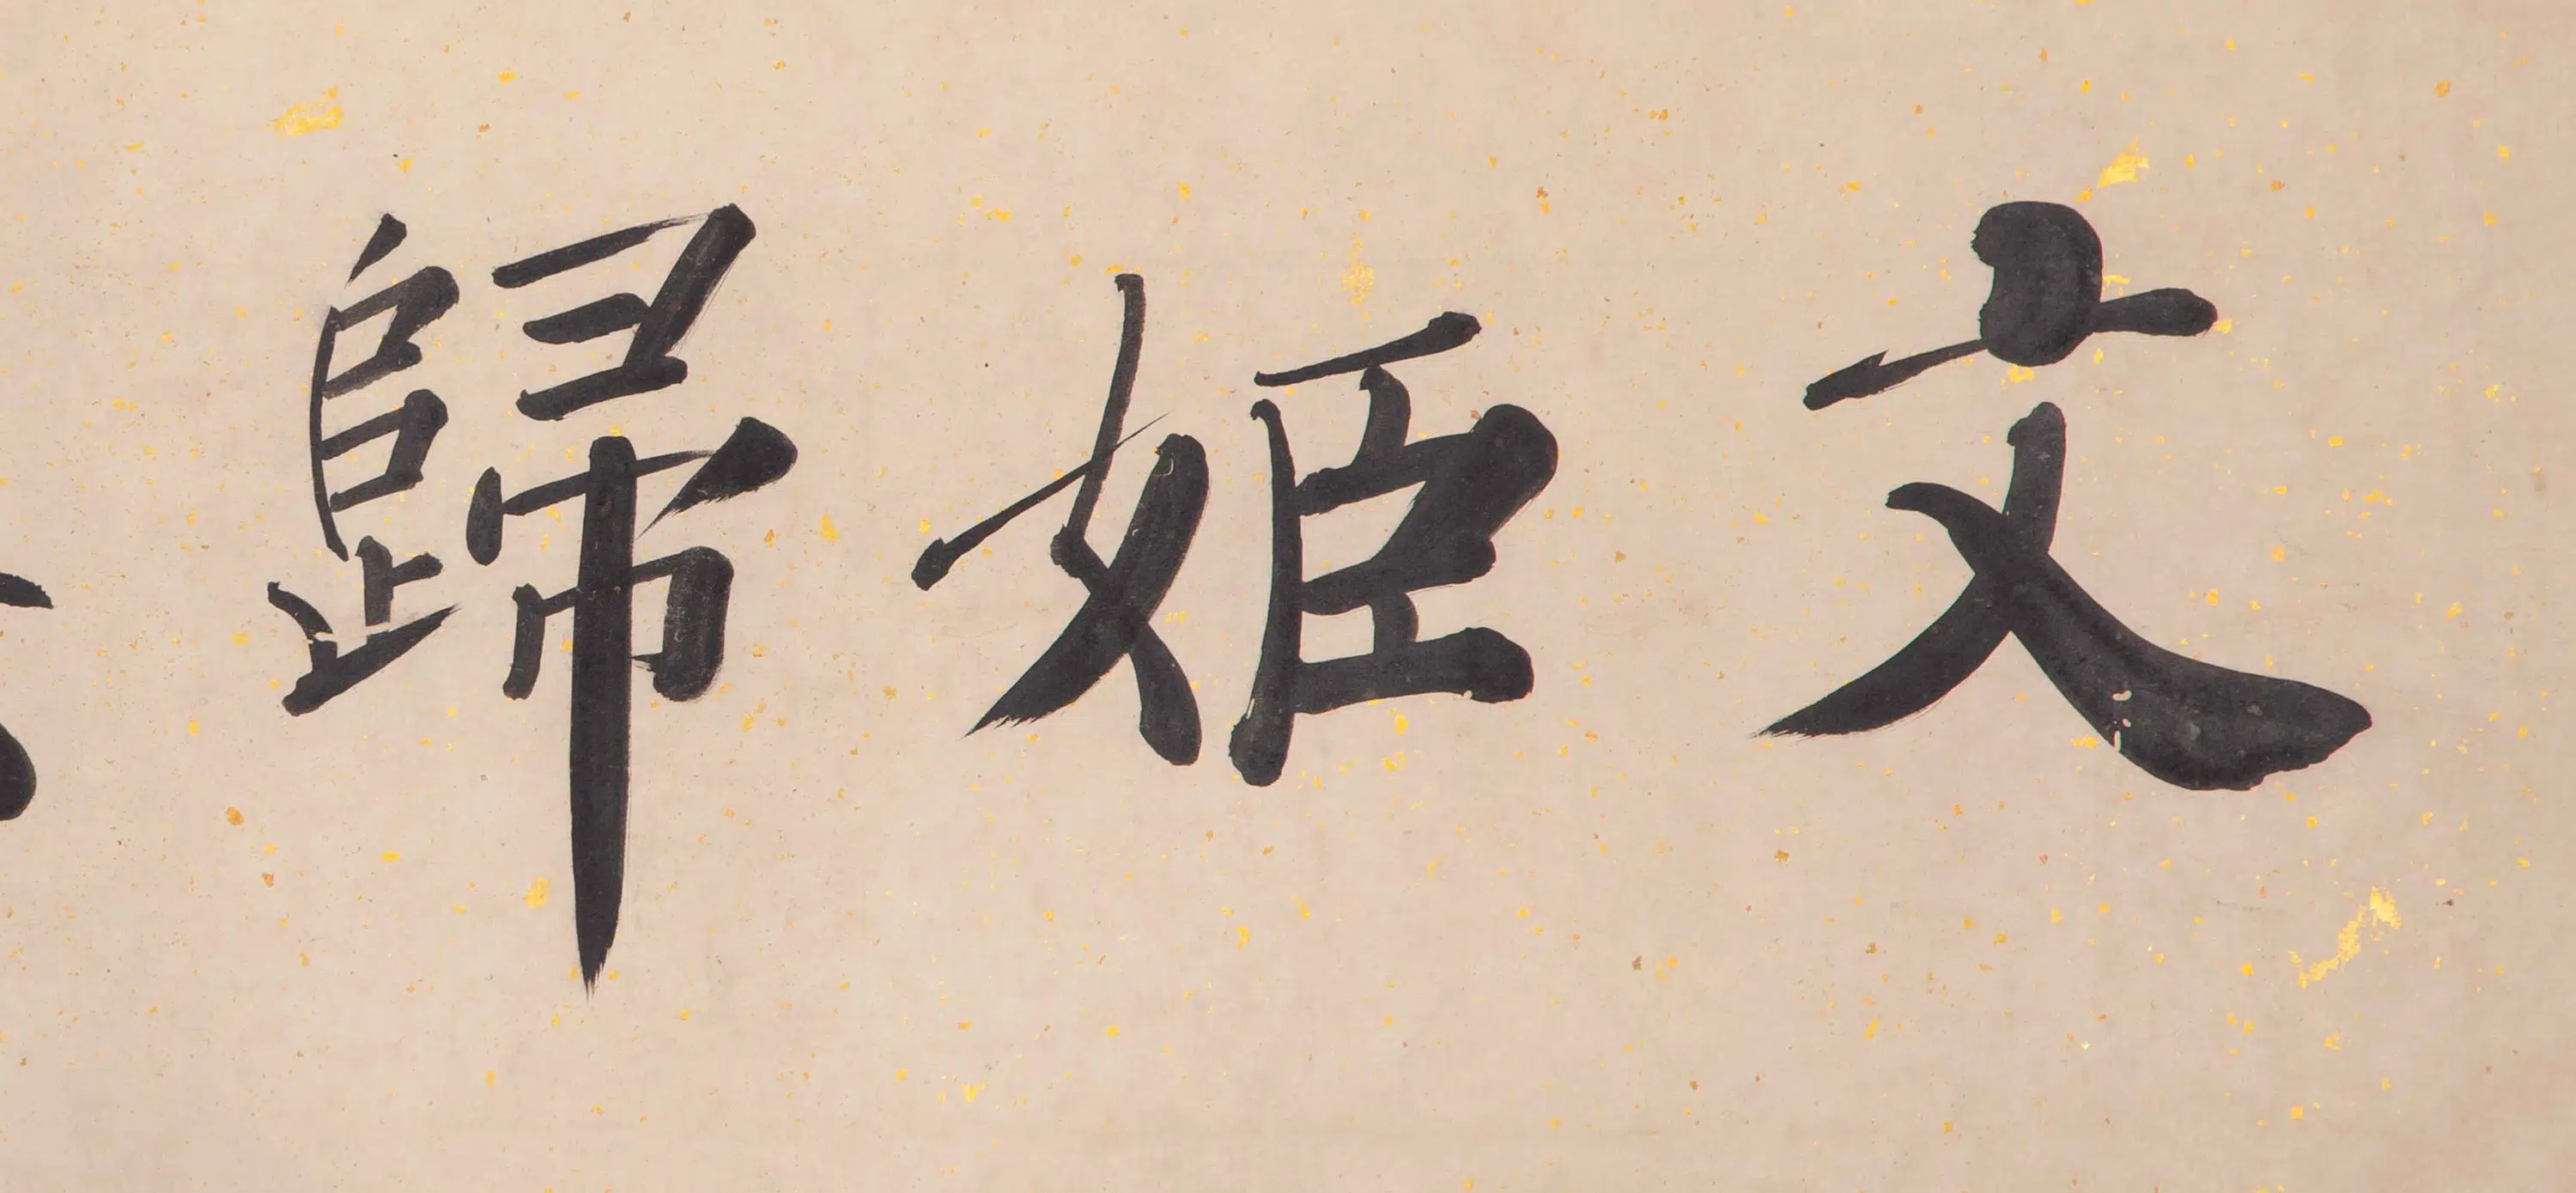 文姬歸